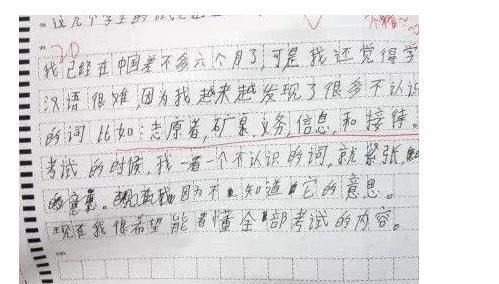 这几个学生的
20
我已经在中国差不多六个月了,可是我还觉得学
汉语很难,因为我越来越发现了很多不认识
的词 比如:志愿者,矿泉,义务,信息,和接待。
考试的时候,我一看一个不认识的词,就紧张,
的意思。 因为不知道它的意思。
现在我很希望能看懂全部考试的内容。